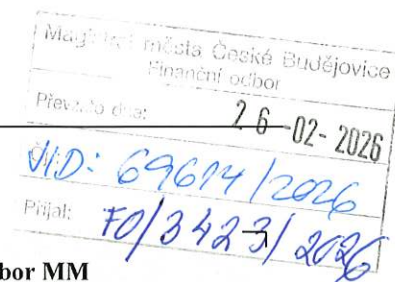 Magistrát města České Budějovice
Finanční odbor
Převzato dne: 26-02-2026
VID: 69614/2026
Přijal: FO/3423/2026
bor MM